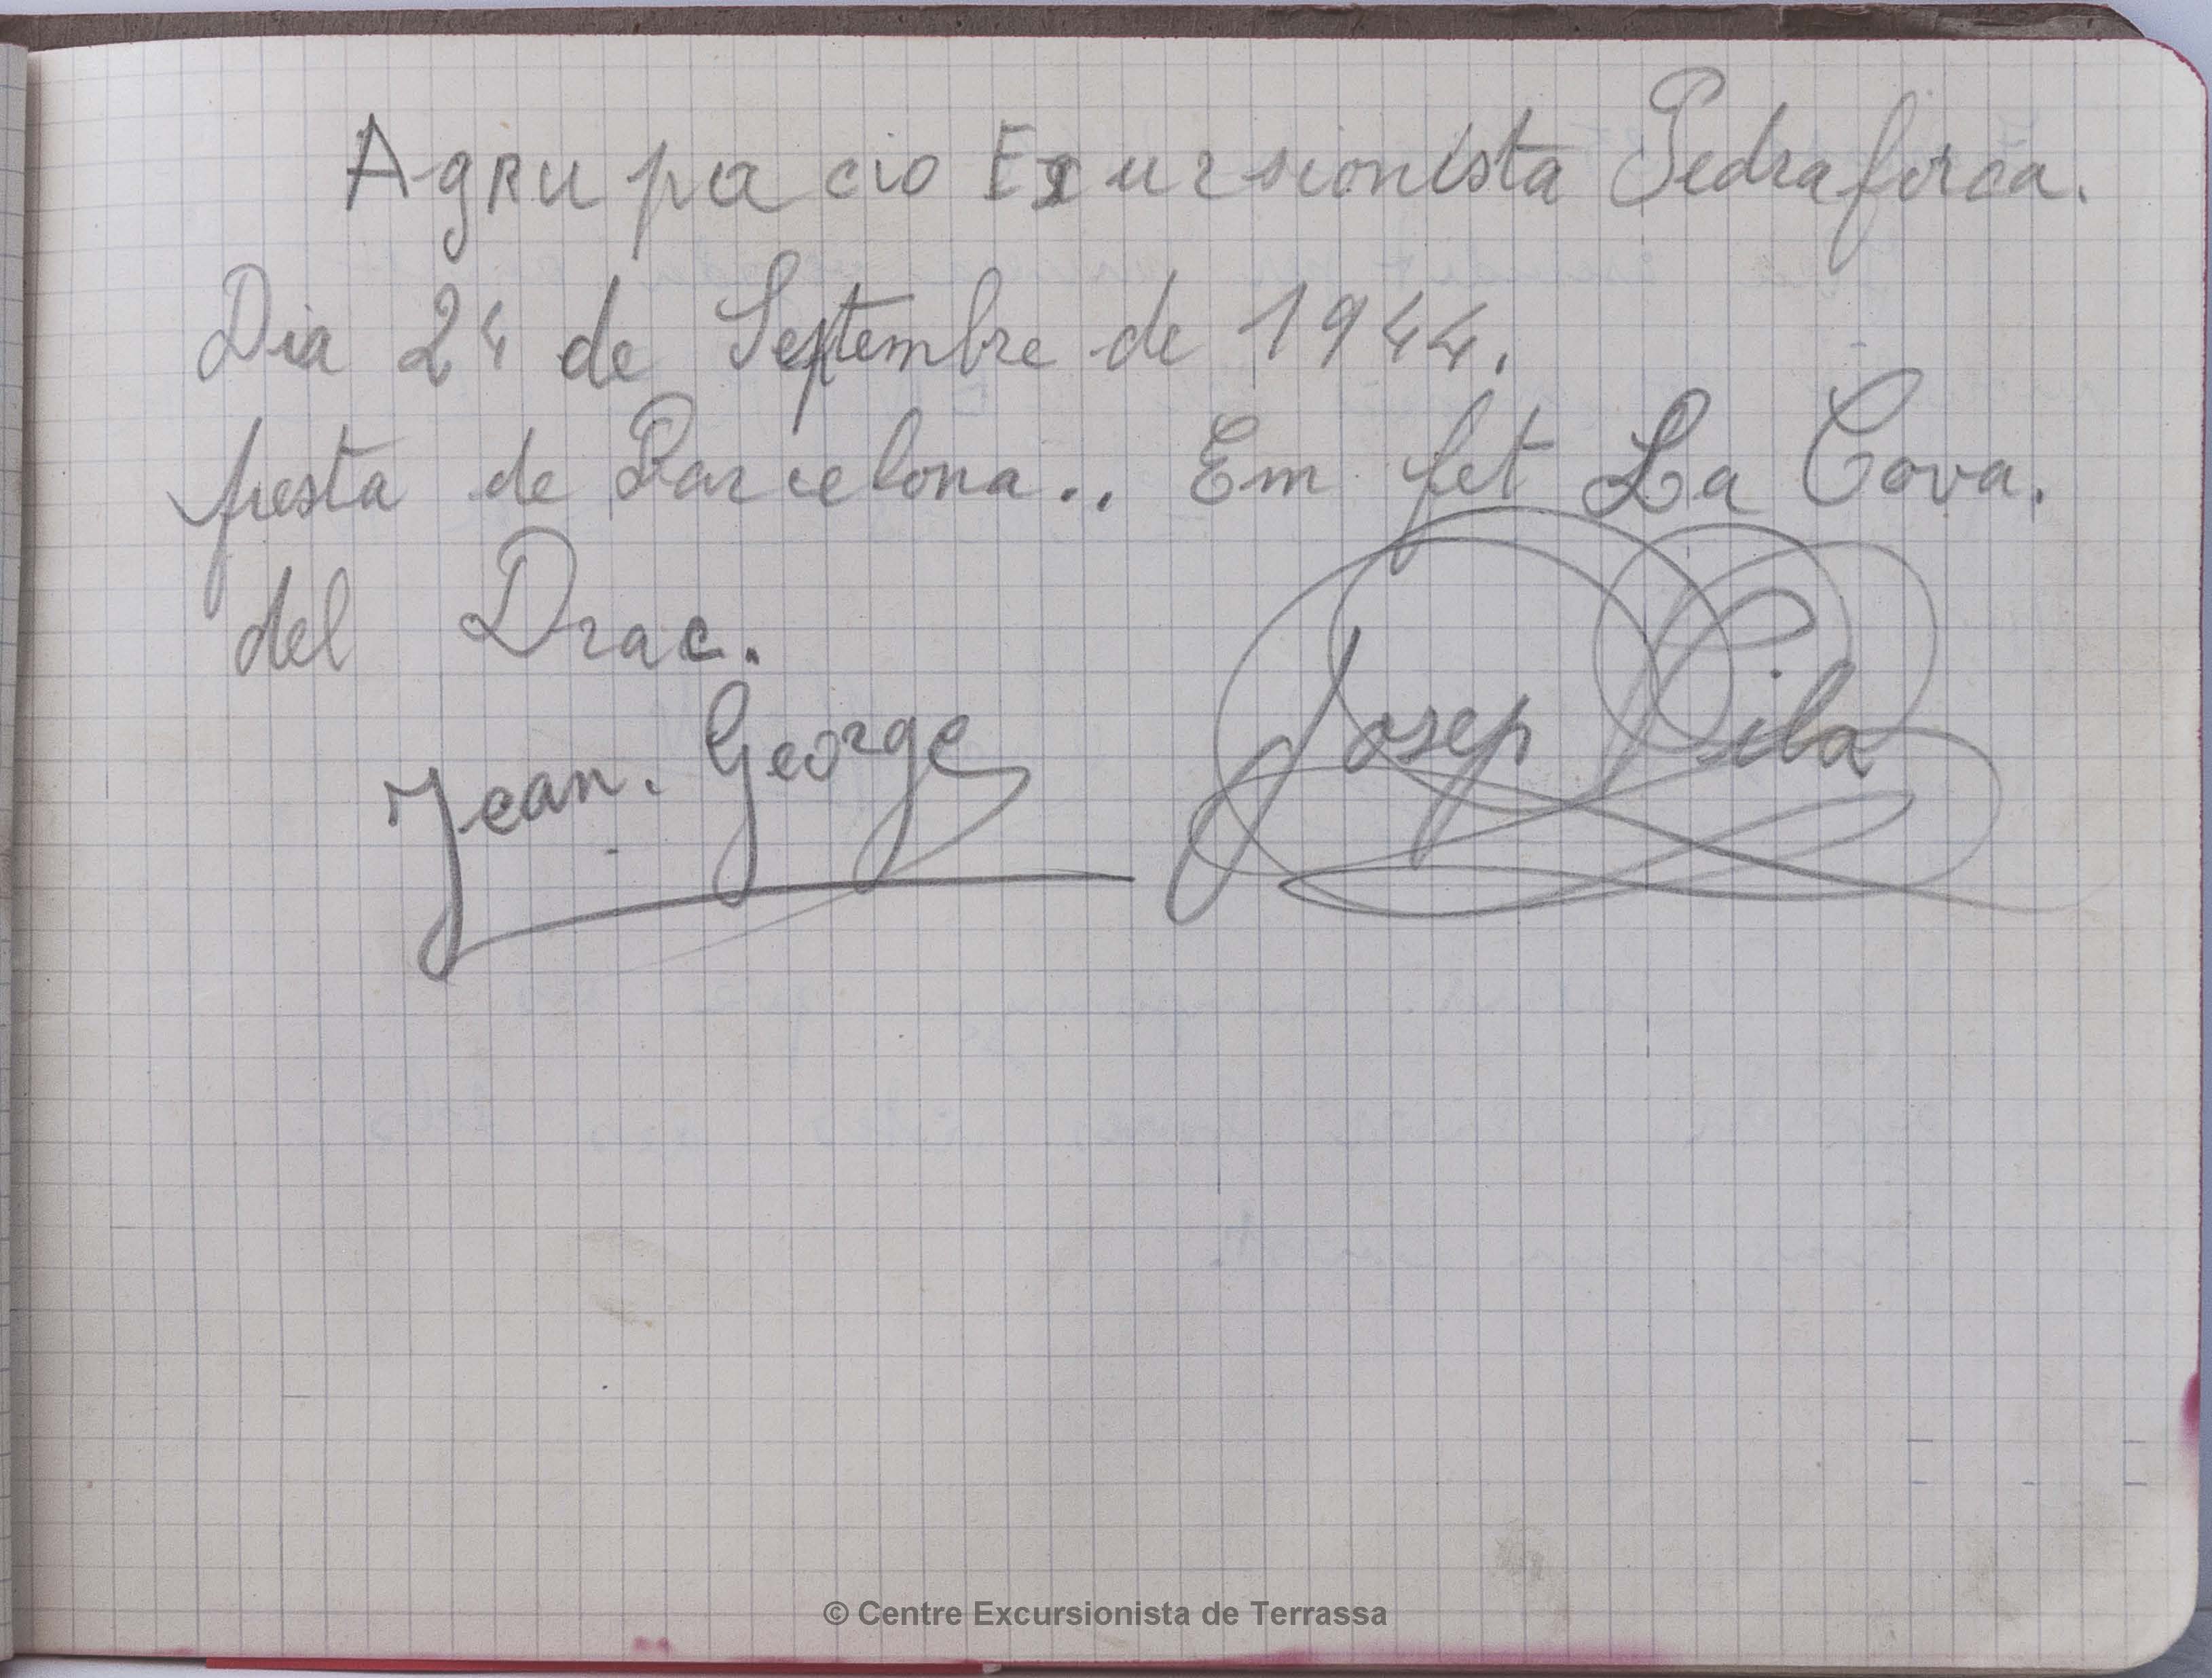 Agrupacio Excursionista Pedraforca.
Dia 24 de Septembre de 1944.
festa de Barcelona.. Em fet La Cova.
del Drac.
Jean. George
Josep Pila
© Centre Excursionista de Terrassa